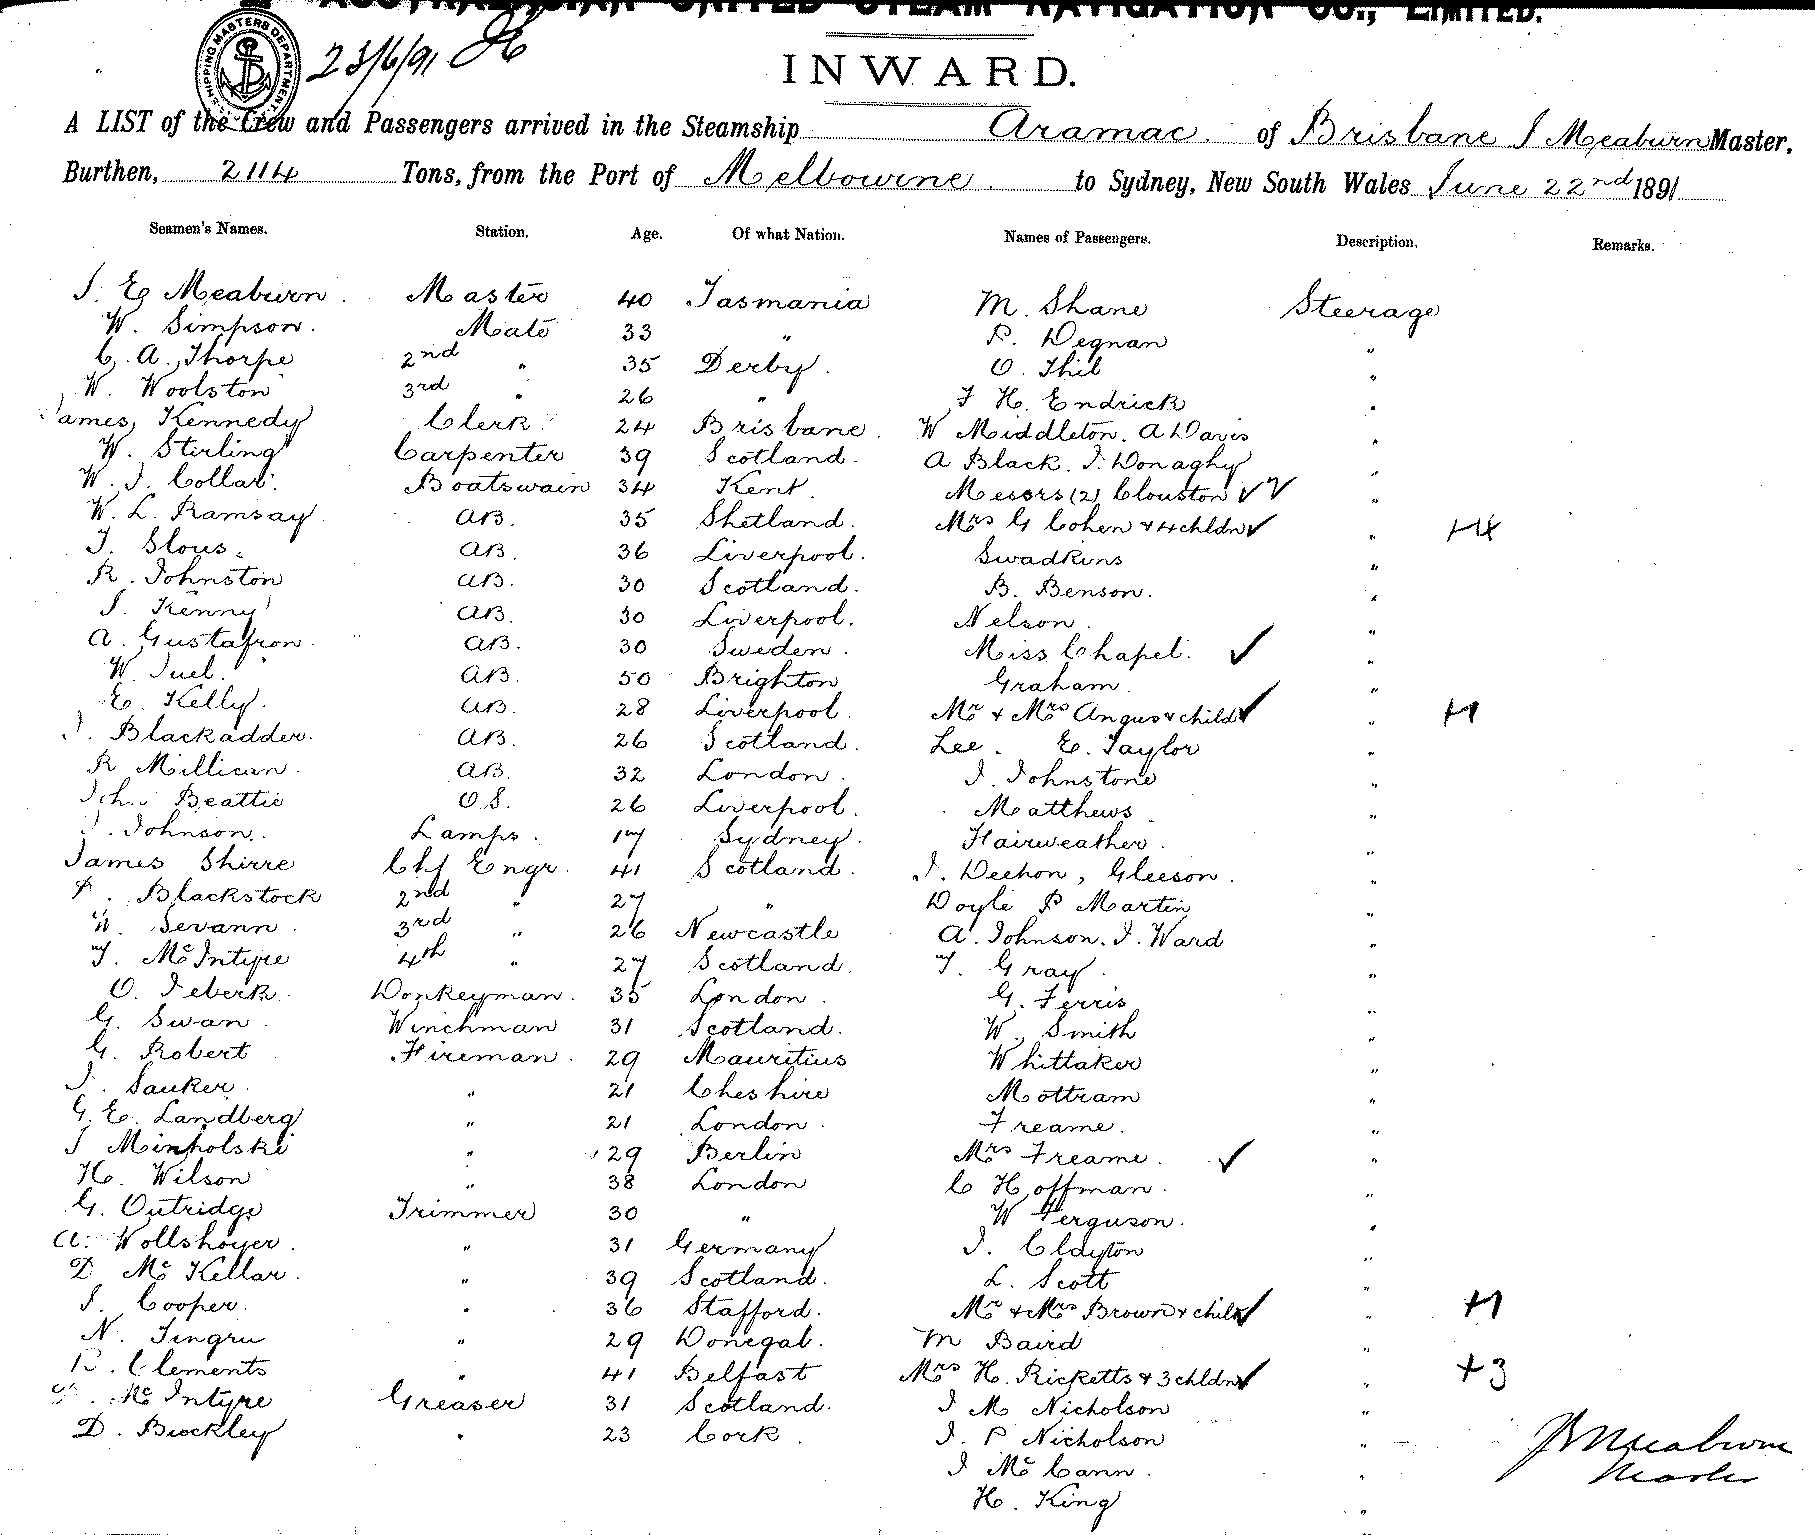 AUSTRALASIAN UNITED STEAM NAVIGATION CO., LIMITED.
SHIPPING MASTERS DEPARTMENT
23/6/91
INWARD.
A LIST of the Crew and Passengers arrived in the Steamship Aramac of Brisbane J Meaburn Master,
Burthen, 2114 Tons, from the Port of Melbourne to Sydney, New South Wales June 22nd 1891
Seamen's Names. Station. Age. Of what Nation. Names of Passengers. Description. Remarks.
J. E Meaburn Master 40 Tasmania M. Shane Steerage
W. Simpson. Mate 33 " P. Degnan "
C. A. Thorpe 2nd " 35 Derby. O. Thil "
W. Woolston 3rd " 26 " F H. Endrick "
James Kennedy Clerk 24 Brisbane. W Middleton. A Davis "
W. Stirling Carpenter 39 Scotland. A Black. J. Donaghy "
W. J. Collar. Boatswain 34 Kent. Messrs (2) Clouston ✓✓ "
W. L. Ramsay AB. 35 Shetland. Mrs G Cohen & 4 chldn ✓ " +4
J. Slous. AB. 36 Liverpool. Swadkins "
R. Johnston AB. 30 Scotland. B. Benson. "
J. Kenny AB. 30 Liverpool. Nelson. "
A. Gustafson. AB. 30 Sweden. Miss Chapel. ✓ "
W. Juel. AB. 50 Brighton Graham. "
E. Kelly. AB. 28 Liverpool. Mr & Mrs Angus & child ✓ " +1
J. Blackadder. AB. 26 Scotland. Lee. E. Taylor "
R Millican. AB. 32 London. J. Johnstone "
John Beattie O.S. 26 Liverpool. Matthews "
J. Johnson. Lamps. 17 Sydney. Fairweather. "
James Shirre Chf Engr. 41 Scotland. J. Deehon, Gleeson. "
Blackstock 2nd " 27 " Doyle P Martin "
W. Sevann. 3rd " 26 Newcastle A. Johnson. J. Ward "
T. McIntyre 4th " 27 Scotland. T. Gray. "
O. Feberk. Donkeyman. 35 London. G. Ferris "
G. Swan. Winchman 31 Scotland. W. Smith "
G. Robert Fireman. 29 Mauritius Whittaker "
J. Sauker. " 21 Cheshire Mottram "
G. E. Landberg " 21 London. Freame. "
J Minholski " 29 Berlin Mrs Freame. ✓ "
H. Wilson " 38 London C Hoffman. "
G. Outridge Trimmer 30 " W Ferguson. "
A. Wollshoyer. " 31 Germany J. Clayton "
D McKellar. " 39 Scotland. L. Scott "
J. Cooper. " 36 Stafford. Mr & Mrs Brown & child ✓ " +1
N. Tingru " 29 Donegal. M Baird "
R. Clements " 41 Belfast Mrs H. Ricketts & 3 chldn ✓ " +3
McIntyre Greaser 31 Scotland. J M Nicholson "
D. Brockley " 23 Cork. J. P Nicholson "
J McCann. "
H. King "
Meaburn
Master